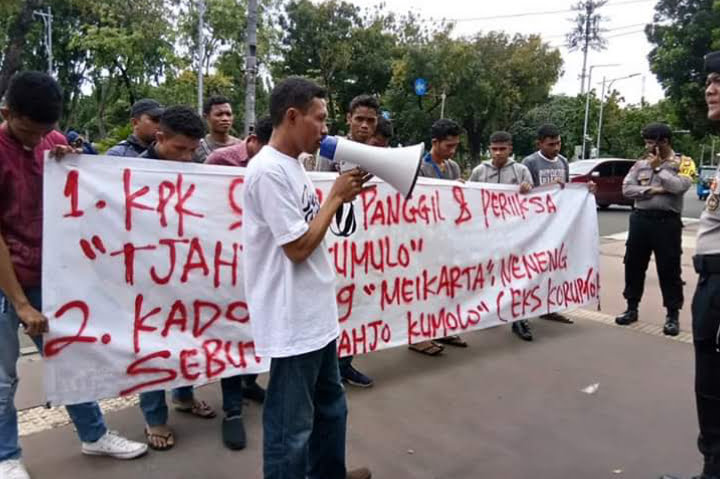 1. KPK PANGGIL & PERIIKSA
"TJAH UMULO"
2. KADO "MEIKARTA", NENENG
SEBU AHJO KUMOLO" (EKS KORUPTO